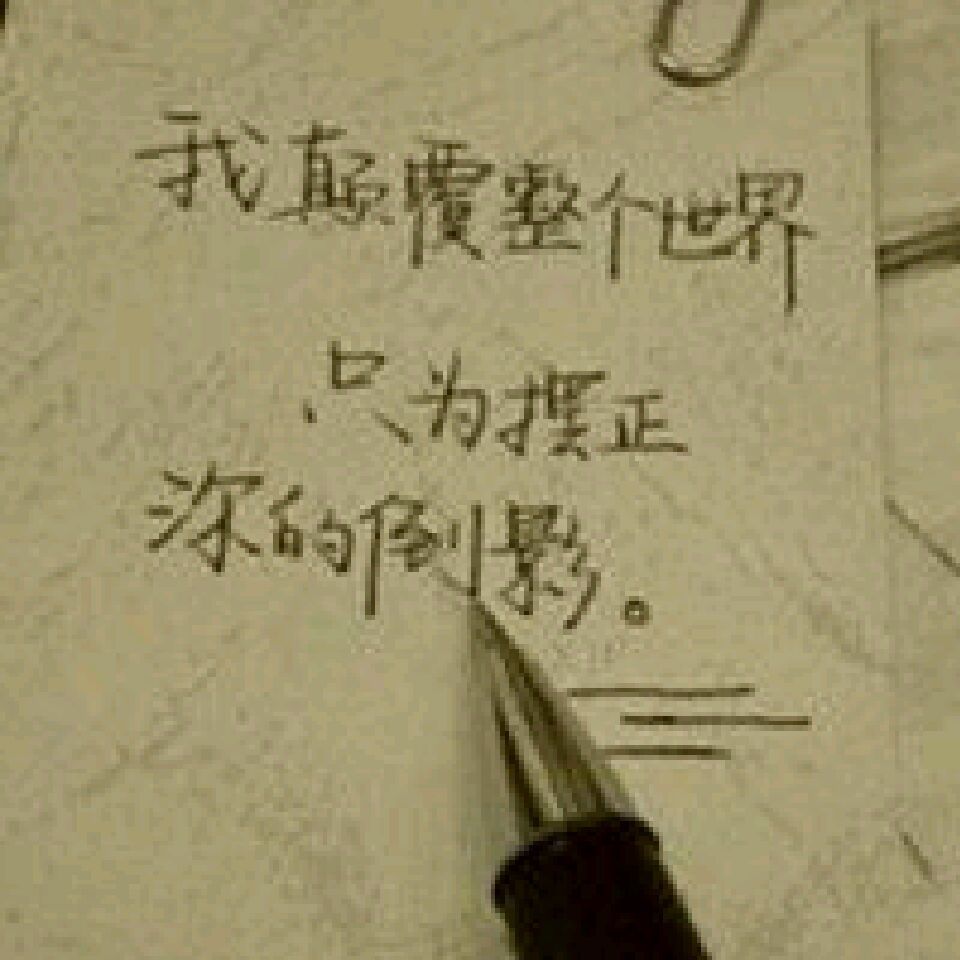 我颠覆整个世界
只为摆正
深的倒影。